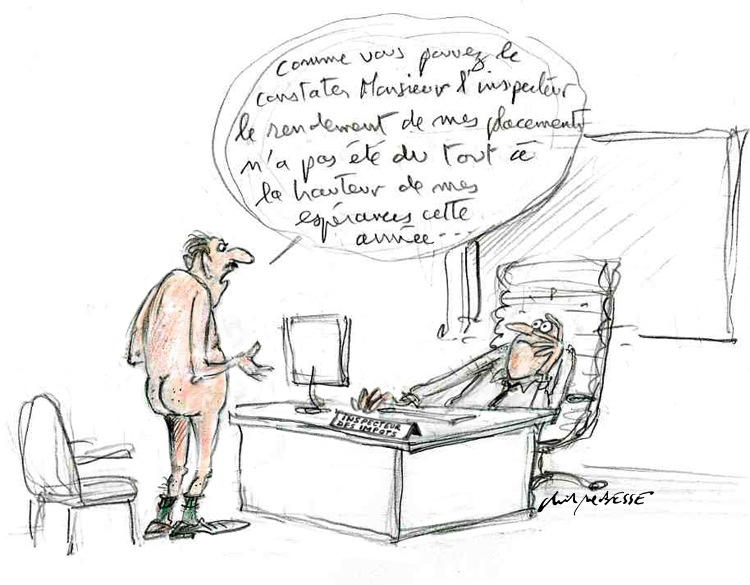 Comme vous pouvez le
constater Monsieur l'inspecteur
le rendement de mes placements
n'a pas été du tout à
la hauteur de mes
espérances cette
année...
INSPECTEUR
DES IMPÔTS
BESSE